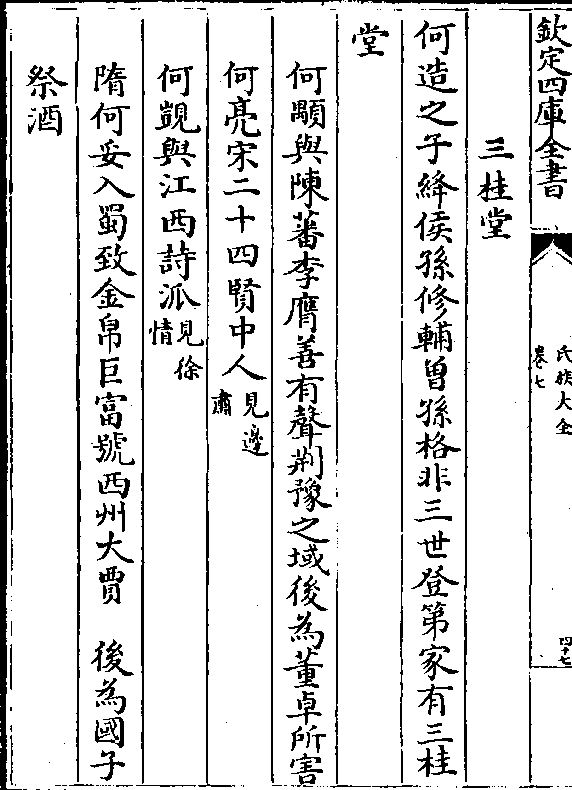 欽定四庫全書
氏族大全
卷七
四十七
三桂堂
何造之子絳侯孫修輔曾孫格非三世登第家有三桂
堂
何顒與陳蕃李膺善有聲荆豫之域後為董卓所害
何亮宋二十四賢中人見邊肅
何覬與江西詩派見徐情
隋何妥入蜀致金帛巨富號西州大賈　後為國子
祭酒